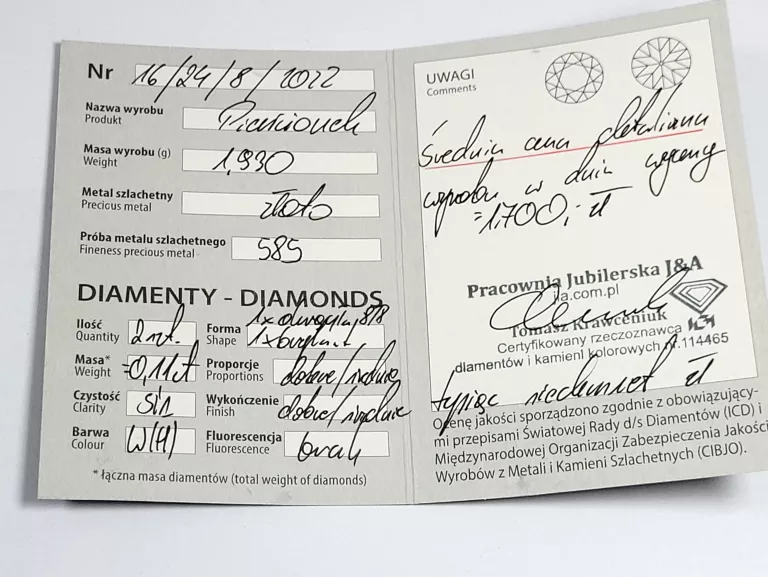 Nr 16/24/8/2022
Nazwa wyrobu Pierścionek
Produkt
Masa wyrobu (g) 1,930
Weight
Metal szlachetny złoto
Precious metal
Próba metalu szlachetnego 585
Fineness precious metal
DIAMENTY - DIAMONDS
Ilość 2 szt.
Quantity
Forma 8/8
Shape 1x brylant
Masa* ~0,11ct
Weight
Proporcje dobre/średnie
Proportions
Czystość SI1
Clarity
Wykończenie dobre/średnie
Finish
Barwa W(H)
Colour
Fluorescencja brak
Fluorescence
* łączna masa diamentów (total weight of diamonds)
UWAGI
Comments
Średnia cena detaliczna
wyrobu w dniu wyceny
=1.700,- zł
Pracownia Jubilerska J&A
jla.com.pl
Tomasz Krawceniuk
Certyfikowany rzeczoznawca
diamentów i kamieni kolorowych nr.114465
tysiąc siedemset zł
Ocenę jakości sporządzono zgodnie z obowiązujący-
mi przepisami Światowej Rady d/s Diamentów (ICD) i
Międzynarodowej Organizacji Zabezpieczenia Jakości
Wyrobów z Metali i Kamieni Szlachetnych (CIBJO).